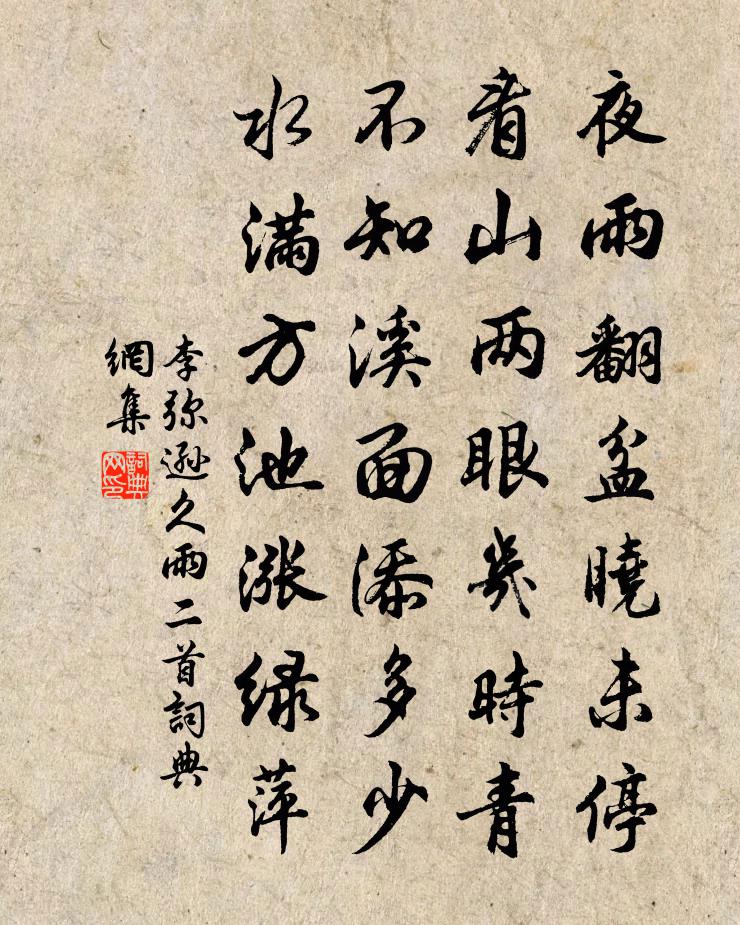 夜雨翻盆曉未停
看山两眼幾時青
不知溪面添多少
水滿方池漲緑萍
李弥遜久雨二首詞典
網集
詞典網印